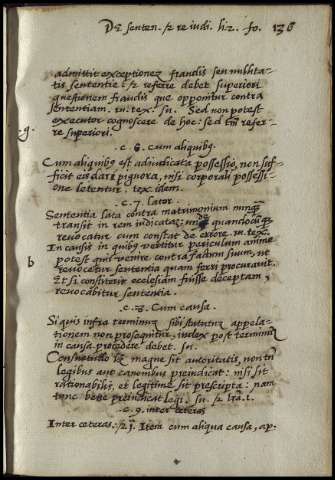 De senten. & re iudi. li. 2. fo. 136
admittit exceptionez fraudis seu nullita-
tis sententie: & referre debet superiori
questionem fraudis que opponitur contra
sententiam. in. tex. su. Sed non potest
executor cognoscere de hoc: sed tm̃ refer-
re superiori.
c. 6. Cum aliquibꝯ
Cum aliquibꝯ est adiudicata possessio, non suf-
ficit eis dari pignora, nisi corporali possessi-
one letentur. tex. idem.
c. 7. Lator.
Sententia lata contra matrimonium nunqꝫ
transit in rem iudicataz: quandocuqꝫ
reuocatur cum constat de errore. in. tex.
In causis in quibꝯ vertitur periculum anime
b
potest quis venire contra factum suum, ut
reuocetur sententia quam ferri procurauit.
Et si constiterit ecclesiam fuisse deceptam
reuocabitur sententia.
c. 8. Cum causa.
Si quis infra terminum sibi statutum appela-
tionem non prosequitur, iudex post terminũ
in causa procedere debet. su.
Consuetudo licz magne sit autoritatis, non tñ
legibus aut canonibus preiudicat: nisi sit
rationabilis, et legitime sit prescripta: nam
tunc bene preiudicat legi. su. &
c. 9. inter ceteras
Inter ceteras: & j. Item cum aliqua causa, ap.